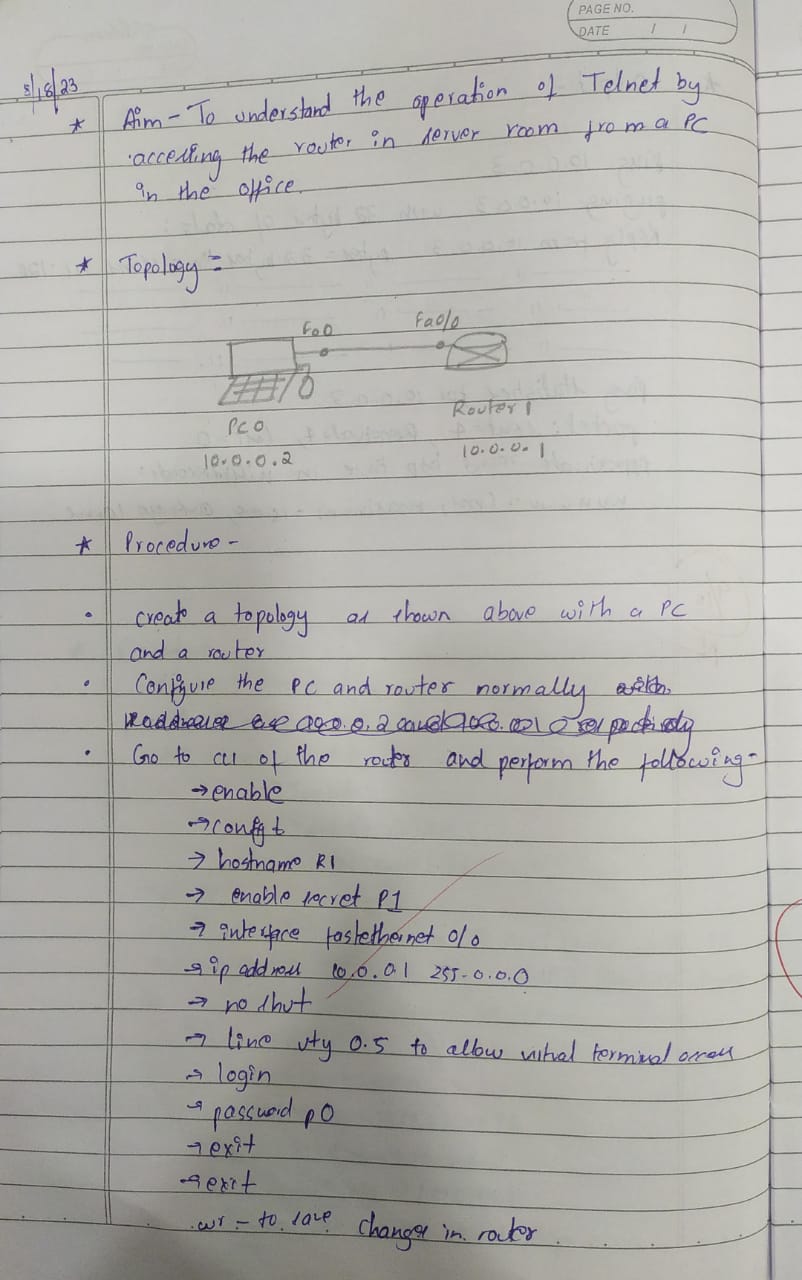 PAGE NO.
DATE / /
8/18/23
* Aim - To understand the operation of Telnet by
accessing the router in server room from a PC
in the office.
* Topology =
Fa0 Fa0/0
PC0 Router 1
10.0.0.2 10.0.0.1
* Procedure -
• create a topology as shown above with a PC
and a router
• Configure the PC and router normally with
10.0.0.2 and respectively
• Go to CLI of the router and perform the following -
→ enable
→ config t
→ hostname R1
→ enable secret P1
→ interface fastethernet 0/0
→ ip address 10.0.0.1 255.0.0.0
→ no shut
→ line vty 0.5 to allow virtual terminal access
→ login
→ password p0
→ exit
→ exit
wr - to save changes in router